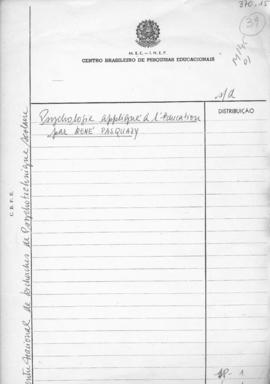 370.15
39
M.E.C. - I.N.E.P.
CENTRO BRASILEIRO DE PESQUISAS EDUCACIONAIS
s/d
DISTRIBUIÇÃO
Psychologie appliqué à l'education
par RENÉ PASQUASY
C. B. P. E.
National de Recherches de Psychotechnique Scolaire
1